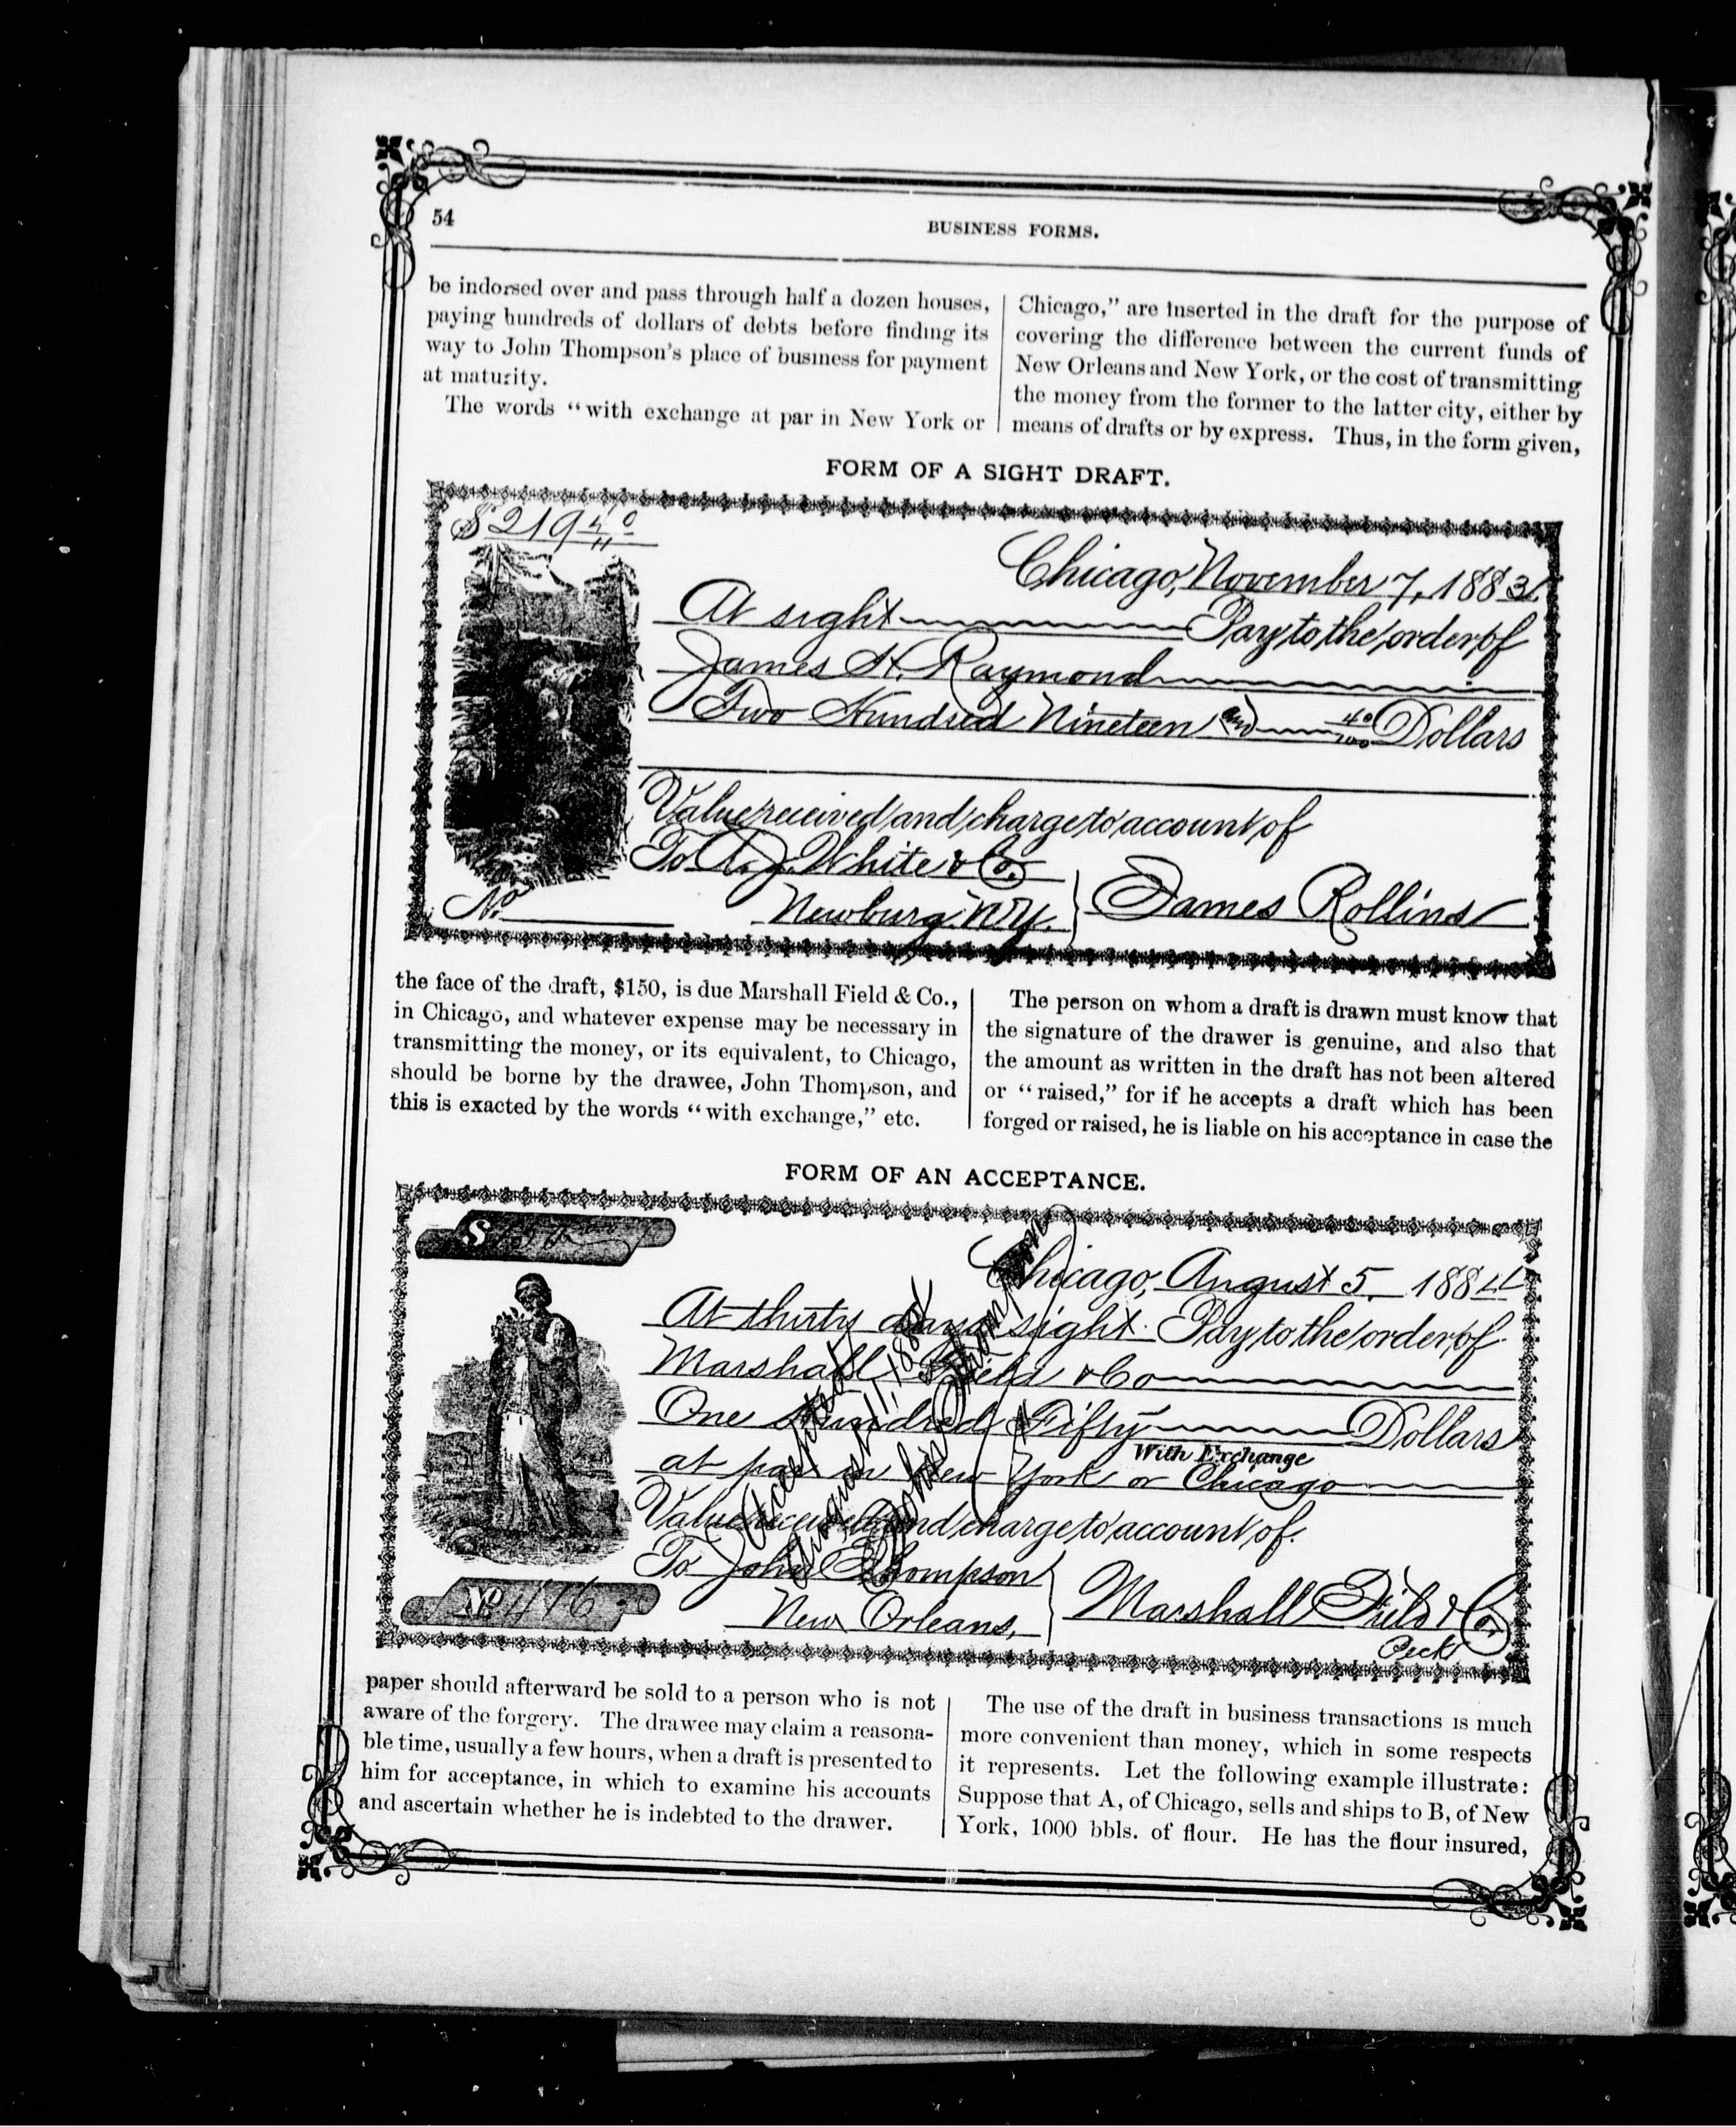 54
BUSINESS FORMS.
be indorsed over and pass through half a dozen houses,
paying hundreds of dollars of debts before finding its
way to John Thompson's place of business for payment
at maturity.
The words "with exchange at par in New York or
Chicago," are inserted in the draft for the purpose of
covering the difference between the current funds of
New Orleans and New York, or the cost of transmitting
the money from the former to the latter city, either by
means of drafts or by express. Thus, in the form given,
FORM OF A SIGHT DRAFT.
$219 40
Chicago, November 7, 1883.
At sight Pay to the order of
James H. Raymond
Two Hundred Nineteen and 40/100 Dollars
Value received and charge to account of
To A. J. White & Co.
No. Newburg, N.Y. James Rollins
the face of the draft, $150, is due Marshall Field & Co.,
in Chicago, and whatever expense may be necessary in
transmitting the money, or its equivalent, to Chicago,
should be borne by the drawee, John Thompson, and
this is exacted by the words "with exchange," etc.
The person on whom a draft is drawn must know that
the signature of the drawer is genuine, and also that
the amount as written in the draft has not been altered
or "raised," for if he accepts a draft which has been
forged or raised, he is liable on his acceptance in case the
FORM OF AN ACCEPTANCE.
$
Chicago, August 5, 1884
At thirty days sight Pay to the order of
Marshall Field & Co
One Hundred Fifty Dollars
With Exchange
at par in New York or Chicago
Value received and charge to account of
To John Thompson
New Orleans,
Marshall Field & Co.
Peck
No. 476
Accepted
August 11, 1884
John Thompson
paper should afterward be sold to a person who is not
aware of the forgery. The drawee may claim a reasona-
ble time, usually a few hours, when a draft is presented to
him for acceptance, in which to examine his accounts
and ascertain whether he is indebted to the drawer.
The use of the draft in business transactions is much
more convenient than money, which in some respects
it represents. Let the following example illustrate:
Suppose that A, of Chicago, sells and ships to B, of New
York, 1000 bbls. of flour. He has the flour insured,